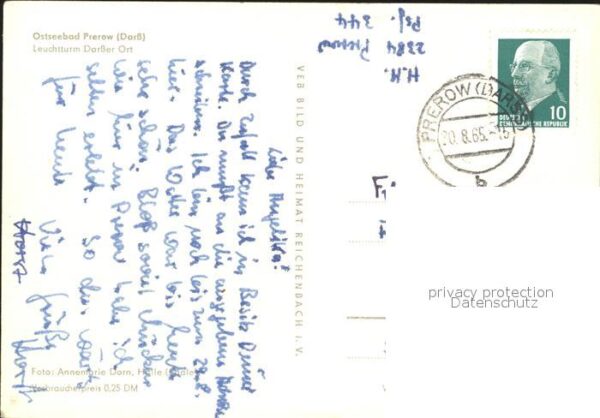 Ostseebad Prerow (Darß)
Leuchtturm Darßer Ort
H.H.
2384 Prerow
Psf. 344
DEUTSCHE
DEMOKRATISCHE REPUBLIK
10
PREROW (DARSS)
20.8.65.-15
b
VEB BILD UND HEIMAT REICHENBACH I. V.
Liebe Angelika!
Durch Zufall kam ich in Besitz Deiner
Karte. Du mußt an die angegebene
schreiben. Ich bin noch bis zum 28.8.
hier. Das Wetter war bis heute
sehr schön. Bloß soviel Mücken
wie hier in Prerow habe ich
selten erlebt. So das wär's
für heute
Viele Grüße
Horst
F
Foto: Annemarie Dorn, Halle (Saale)
Verbraucherpreis 0,25 DM
privacy protection
Datenschutz